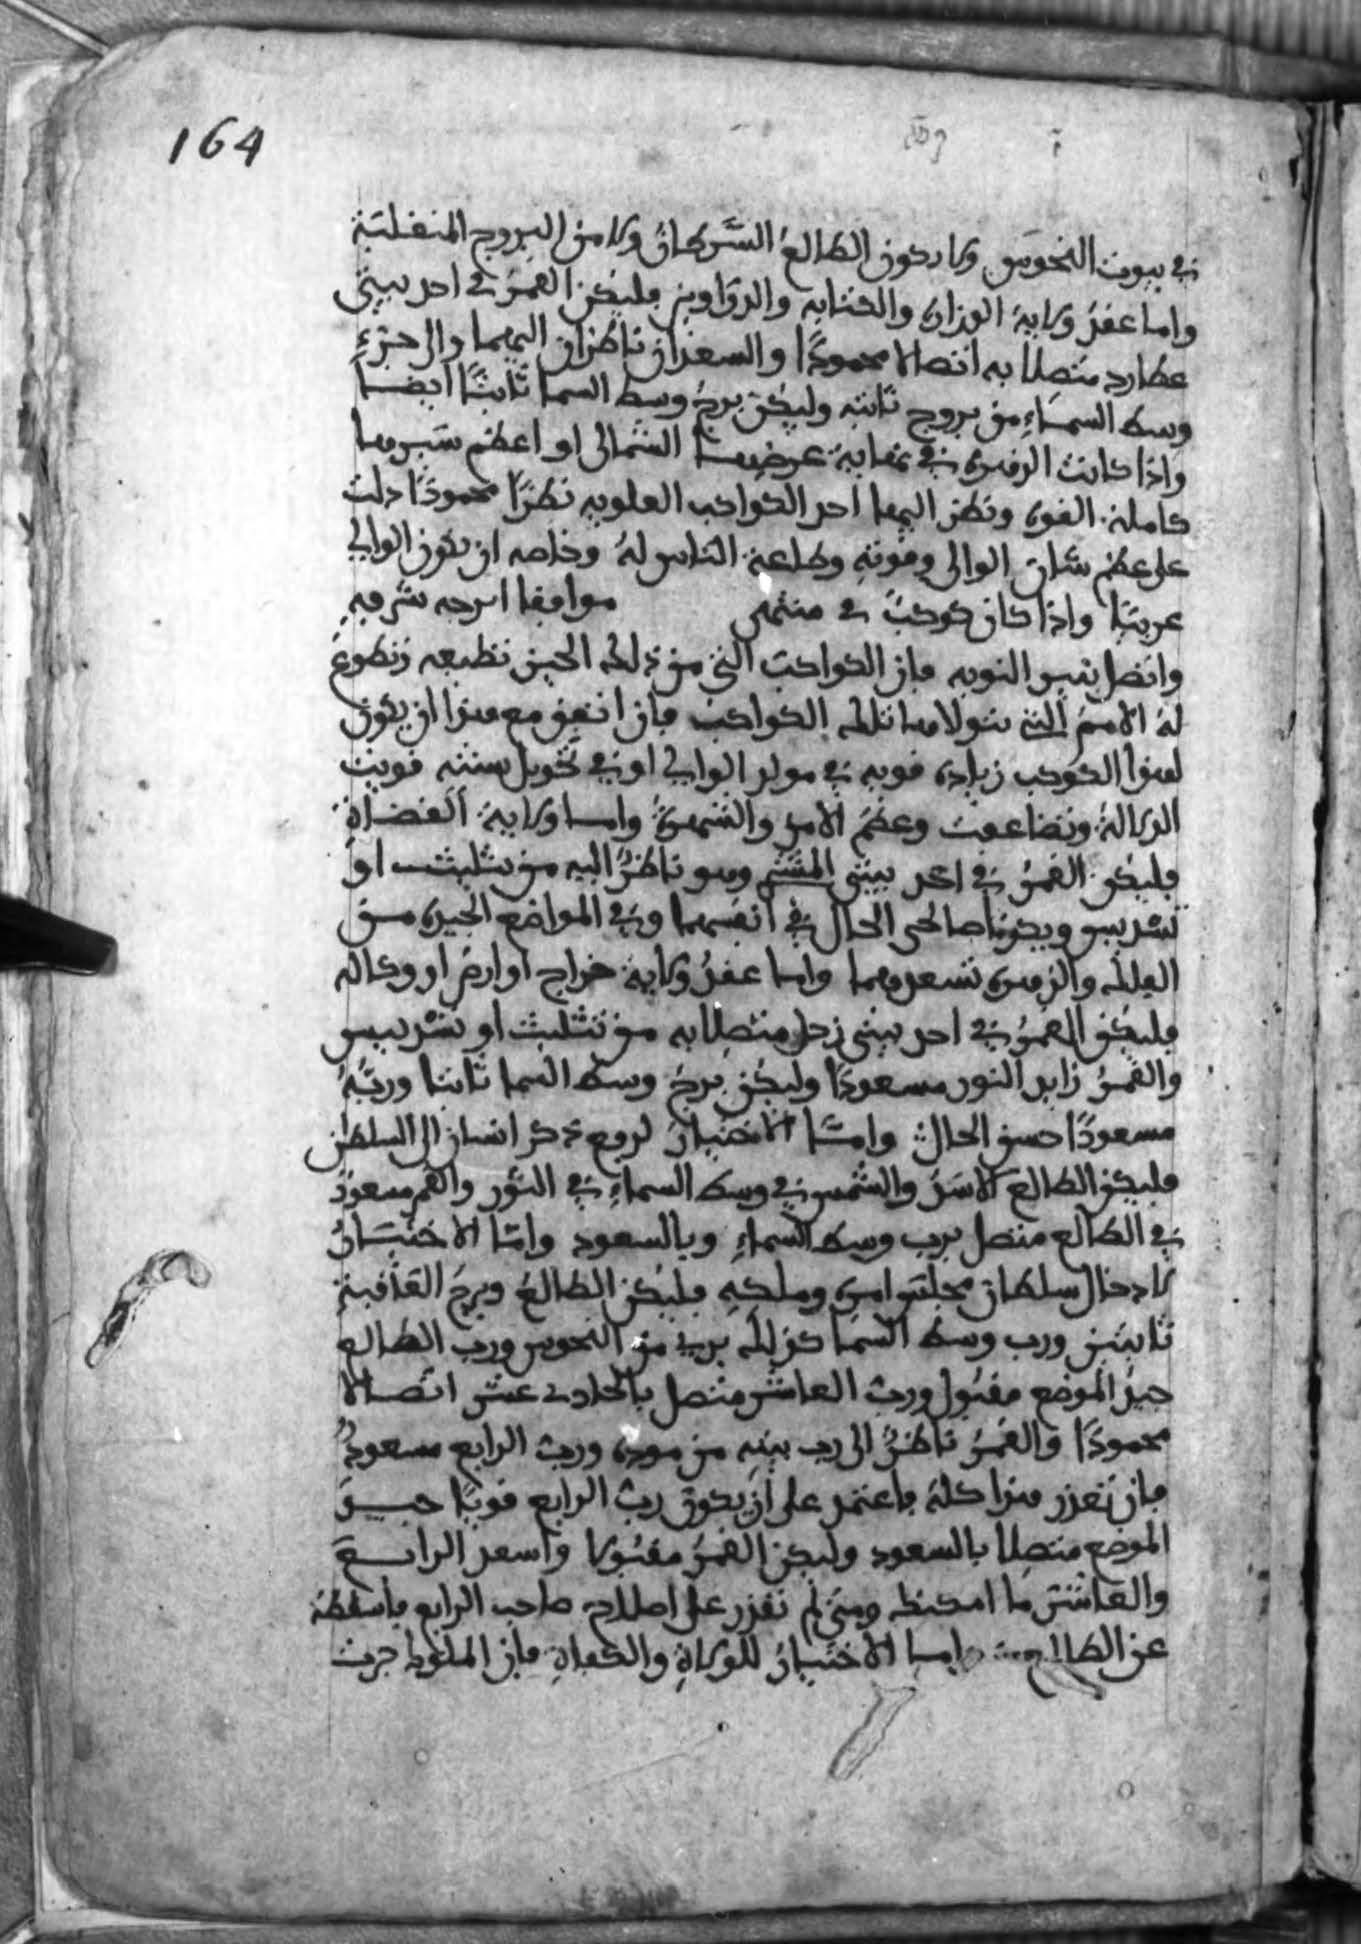 164
في بيوت النحوس ولا يكون الطالع السرطان ولا من البروج المنقلبة
واما عقد ولاية الوزارة والكتابه والدواوين فليكن القمر في احد بيتي
عطارد متصلا به اتصالا محمودا والسعدان ناظران اليهما والى جزء
وسط السماء من بروج ثابته وليكن برج وسط السما ثابتا ايضا
واذا كانت الزهرة في نهاية عرضها الشمالى او اعظم سيرها
كاملة القوة ونظر اليها احد الكواكب العلويه نظرا محمودا دلت
على عظم شان الوالى وقوته وطاعة الناس له وخاصه ان يكون الوالي
عربيا واذا كان كوكب في منتهى موافقا لدرجه شرفه
واتصل بنير النوبه فان الكواكب التي من ذلك الحين تطيعه وتطوع
له الامم التي تتولاها تلك الكواكب فان اتفق مع هذا ان يكون
لهذا الكوكب زيادة قويه في مولد الوالي او في تحويل سنته قويت
الدلالة وتضاعفت وعظم الامر والشهرة واما ولاية القضاة
فليكن القمر في احد بيتي المشتري وهو ناظر اليه من تثليث او
تسديس ويكونا صالحى الحال في انفسهما وفي المواضع الجيدة من
الفلك والزهرة تسعدهما واما عقد ولاية خراج او ارض او وكاله
فليكن القمر في احد بيتي زحل متصلا به من تثليث او تسديس
والقمر زايد النور مسعودا وليكن برج وسط السما ثابتا وربه
مسعودا حسن الحال واما الاختيار لرفع ذكر انسان الى السلطان
فليكن الطالع الاسد والشمس في وسط السماء في الثور والقمر مسعود
في الطالع متصل برب وسط السماء وبالسعود واما الاختيار
لادخال سلطان مجلس امره وملكه فليكن الطالع وبرج العاقبة
ثابتين ورب وسط السما كذلك بري من النحوس ورب الطالع
جيد الموضع مقبول ورب العاشر متصل بالحادي عشر اتصالا
محمودا والقمر ناظر الى رب بيته من مودة ورب الرابع مسعود
فان تعذر هذا كله فاعتمد على ان يكون رب الرابع قويا جيد
الموضع متصلا بالسعود وليكن القمر مقبولا واسعد الرابع
والعاشر ما امكنك ومتى لم تقدر على اصلاح صاحب الرابع فاسقطه
عن الطالع واما الاختيار للولاة والكفاة فان الملوك جرت